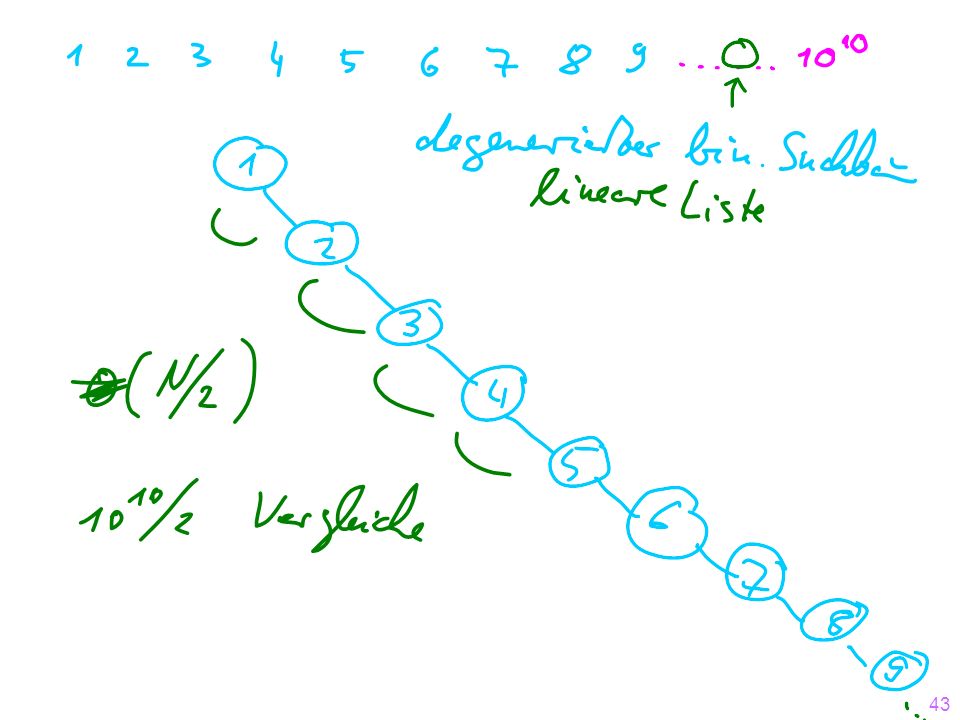 1 2 3 4 5 6 7 8 9 ... O .. 10¹⁰
degenerierter bin. Suchbau
lineare Liste
1
2
3
4
5
6
7
8
9
...
(N/2)
10¹⁰/2 Vergleiche
43